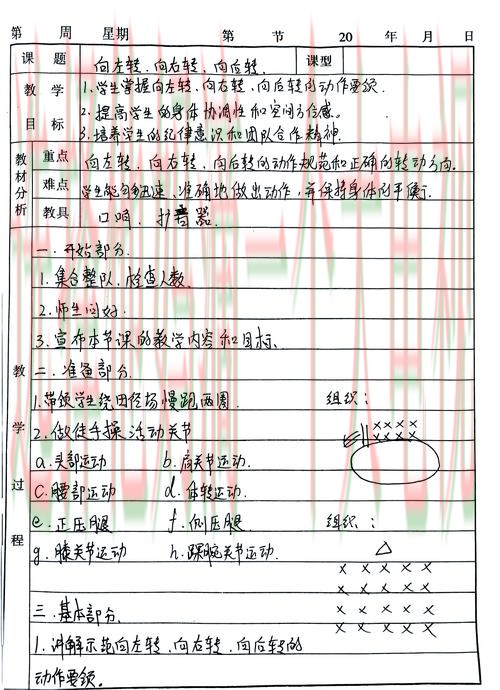 第 周 星期 第 节 20 年 月 日
课 题 向左转、向右转、向后转. 课型
教 学 目 标 1.学生掌握向左转、向右转、向后转的动作要领.
2.提高学生的身体协调性和空间方位感。
3.培养学生的纪律意识和团队合作精神.
教材分析 重点 向左转、向右转、向后转的动作规范和正确的转动方向。
难点 学生能够迅速、准确地做出动作,并保持身体的平衡.
教具 口哨、扩音器.
教 学 过 程
一.开始部分.
1.集合整队、检查人数.
2.师生问好.
3.宣布本节课的教学内容和目标、
二.准备部分.
1.带领学生绕田径场慢跑两圈. 组织:
2.做徒手操活动关节
a.头部运动 b.肩关节运动.
c.腰部运动 d.体转运动.
e.正压腿 f.侧压腿 组织:
g.膝关节运动 h.踝腕关节运动.
三.基本部分.
1.讲解示范向左转、向右转、向后转的
动作要领。